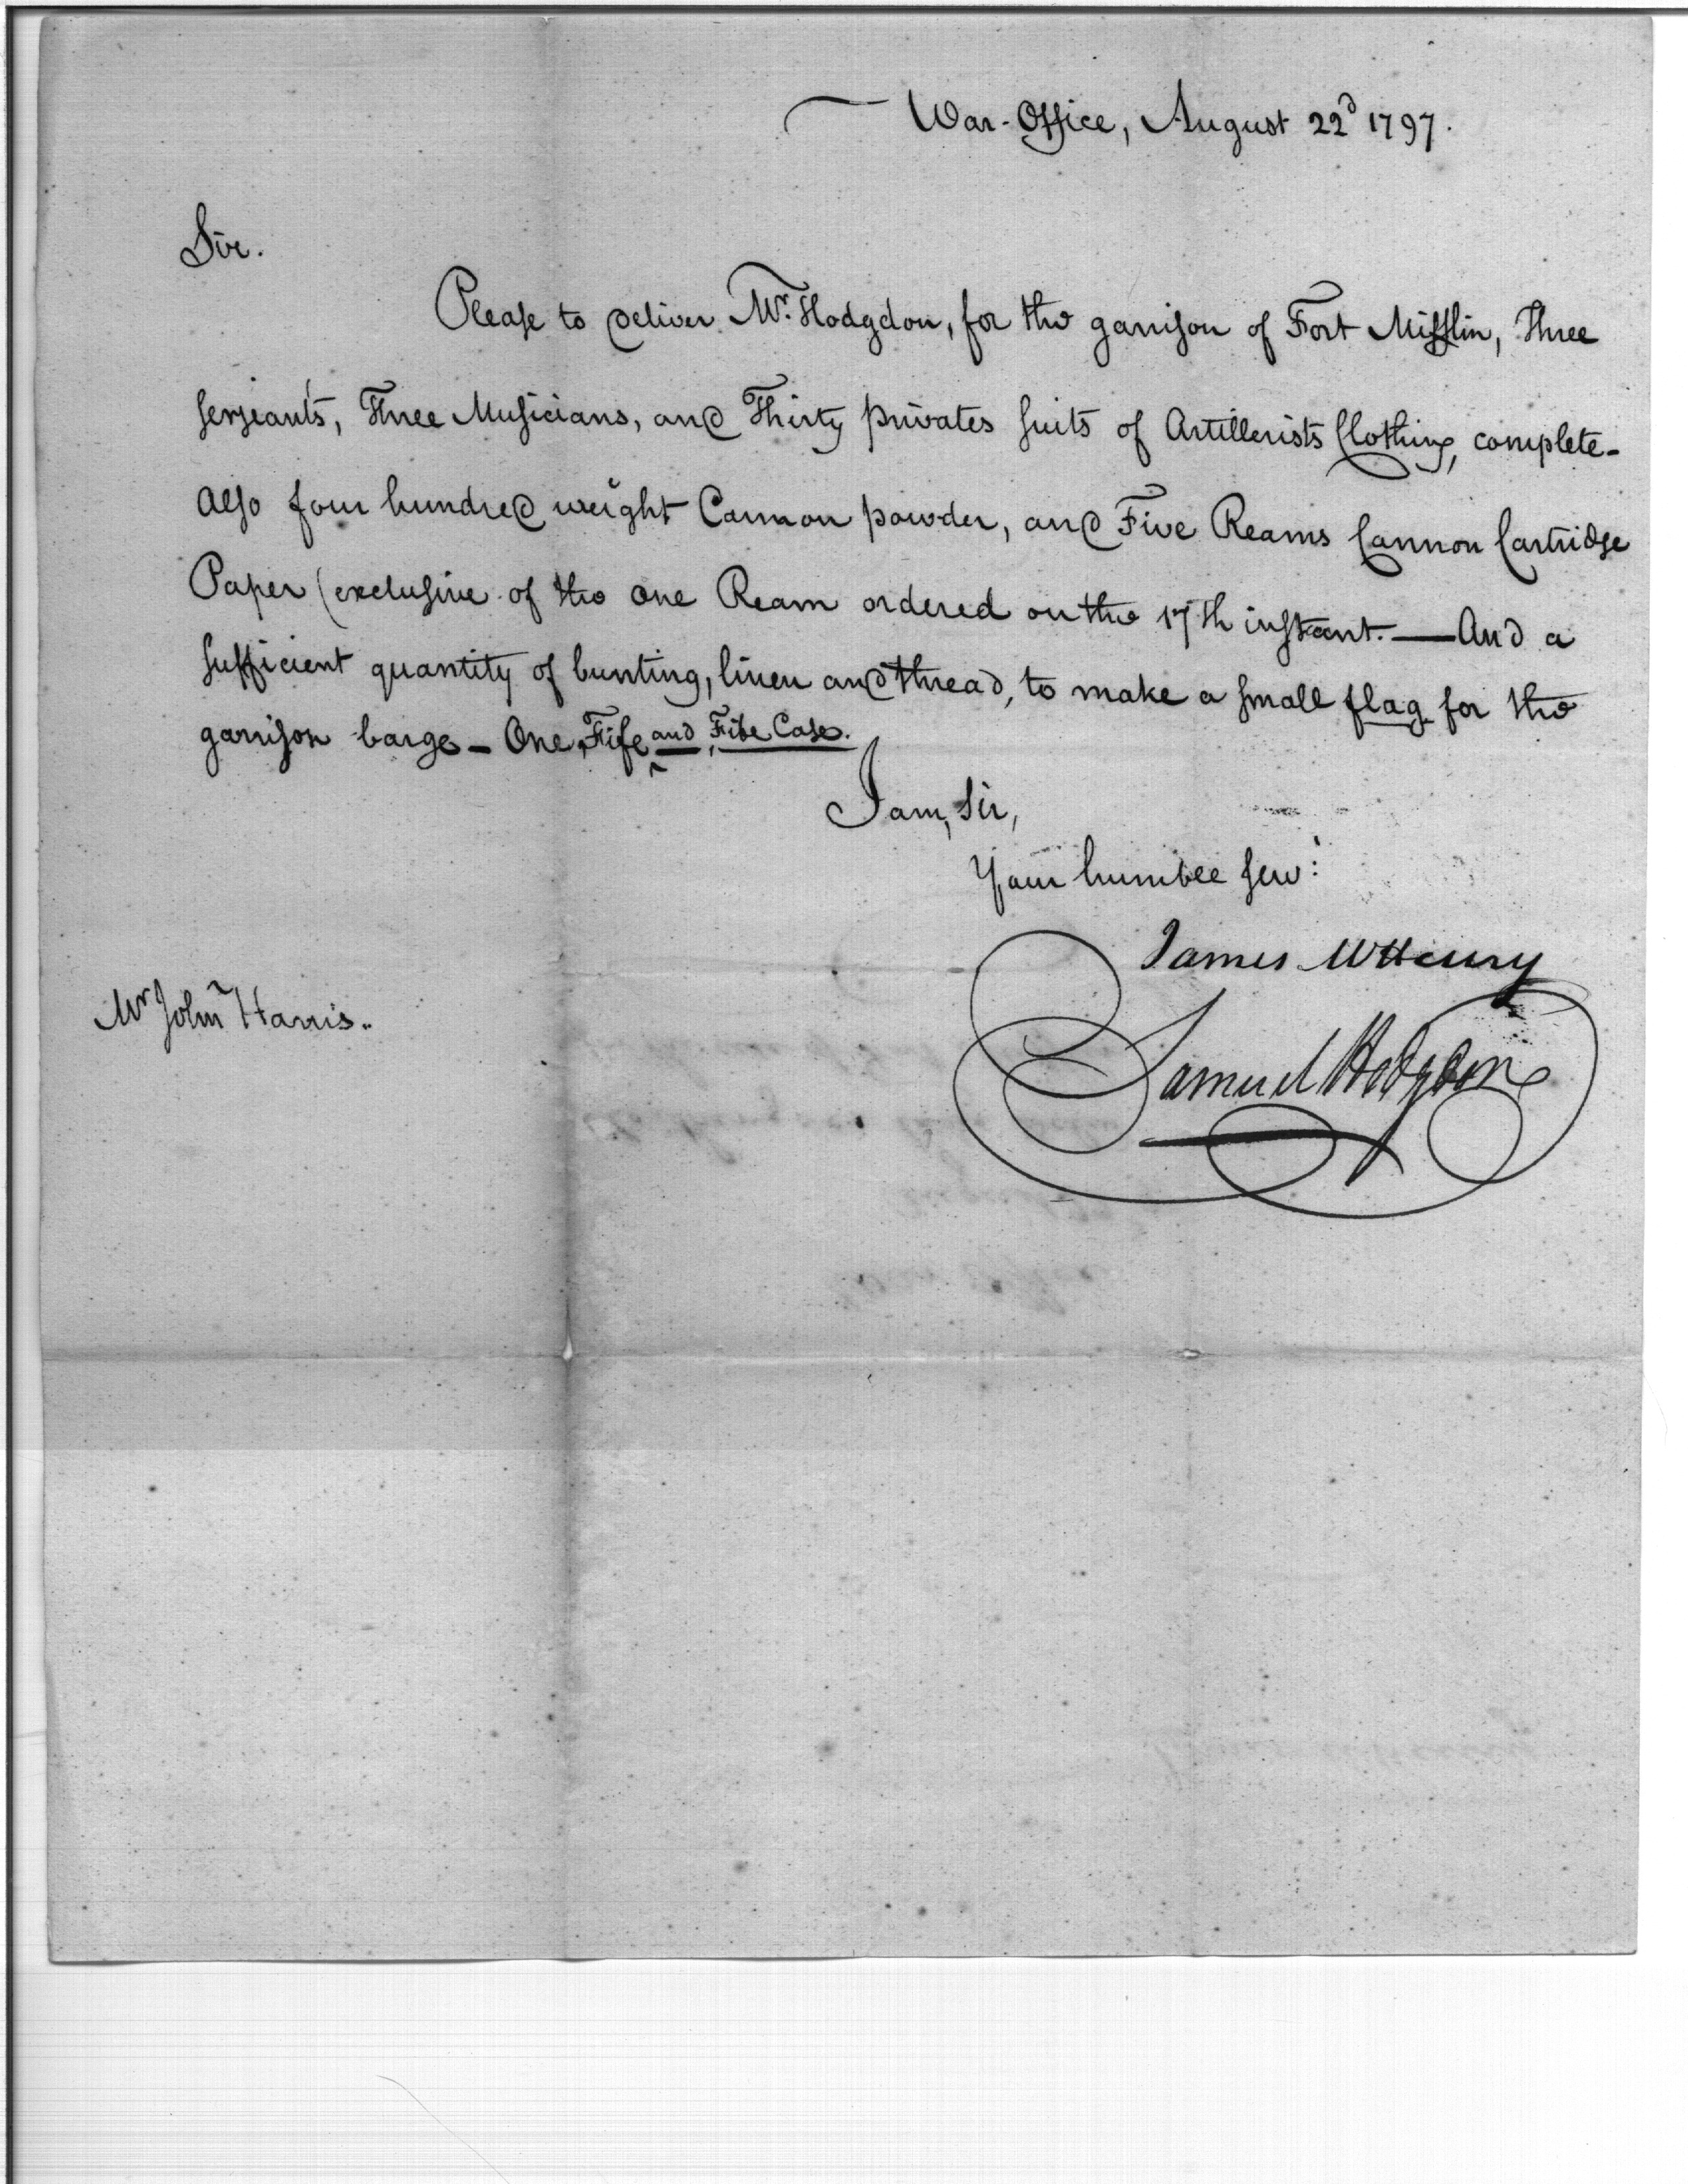 War-Office, August 22d 1797.
Sir.
Please to deliver Mr. Hodgdon, for the garrison of Fort Mifflin, Three
serjeants, Three Musicians, and Thirty privates suits of Artillerists Clothing, complete-
Also four hundred weight Cannon powder, and Five Reams Cannon Cartridge
Paper (exclusive of the one Ream ordered on the 17th instant. — And a
sufficient quantity of bunting, linen and thread, to make a small flag for the
garrison barge - One, Fife and Fife Case.
I am, Sir,
Your humble serv:
James McHenry
Samuel Hodgdon
Mr John Harris..